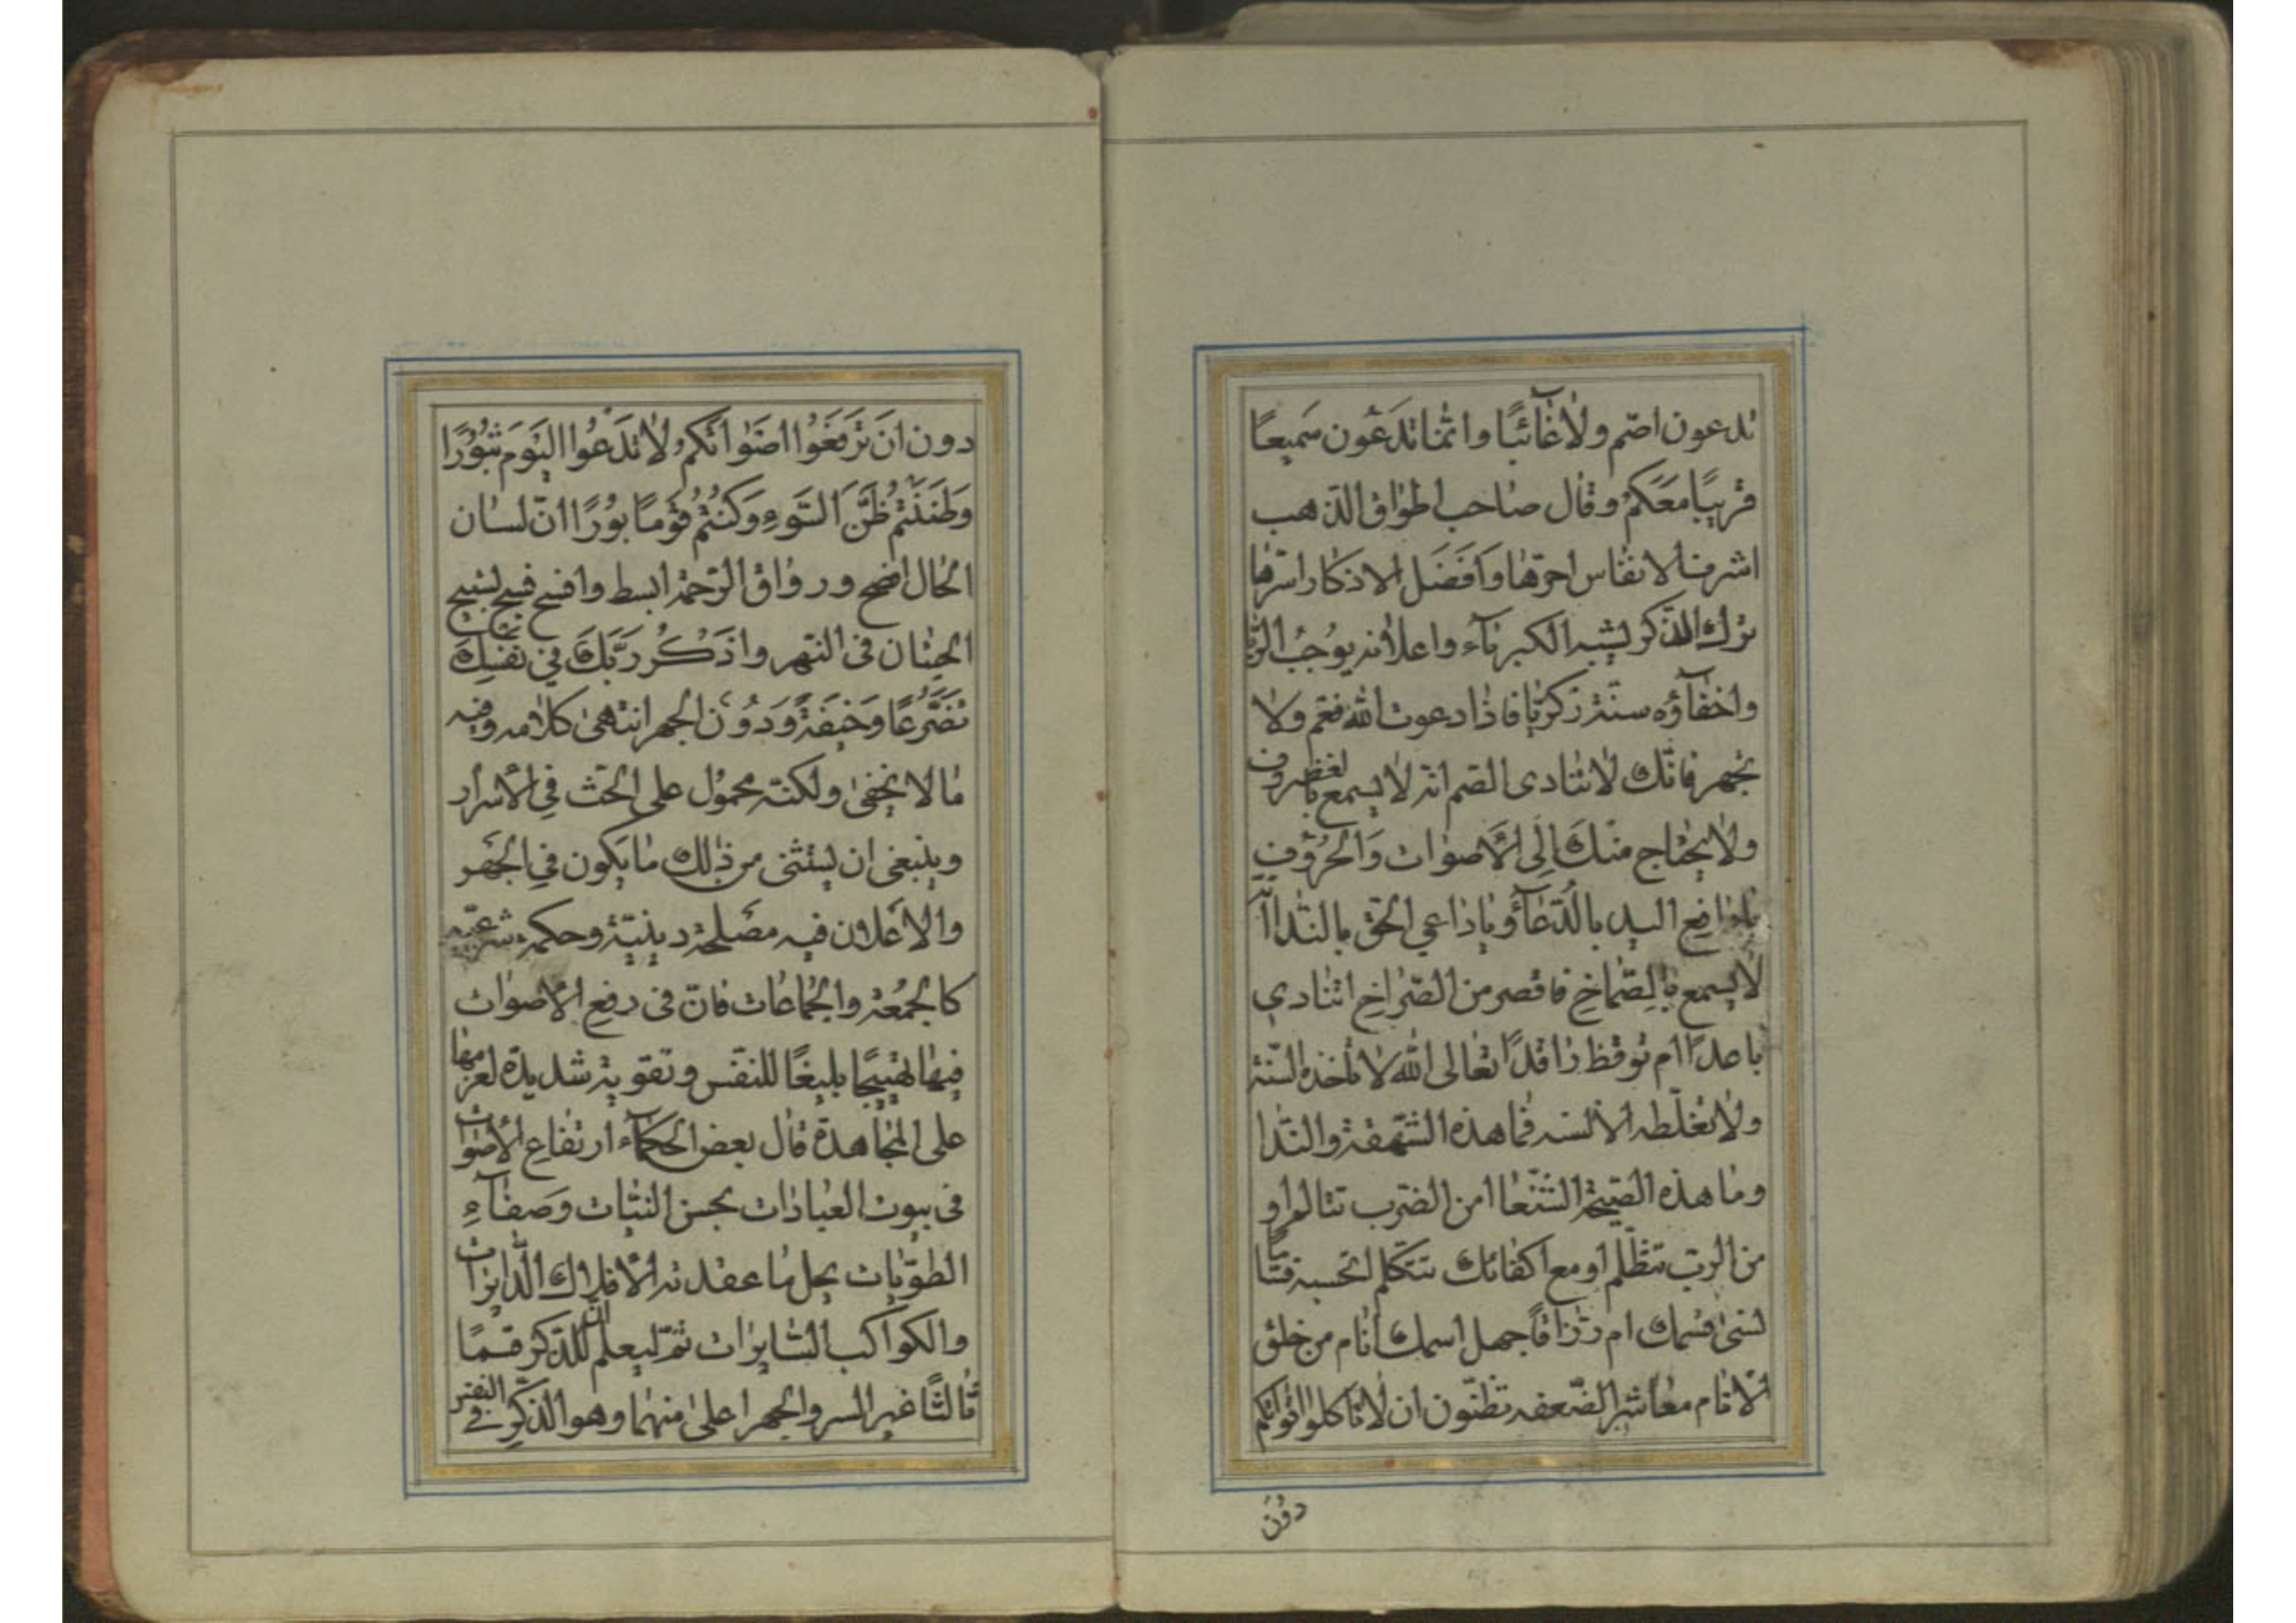 تدعون اصّم ولا غآئبًا وانّما تدَعُون سَميعًا
قريبًا معَكمْ وقال صاحب اطواق الذّهب
اشرف الانفاس احرّها وَافَضَل الاذكار اسرّها
ترك الذّكر يشبه الكبريآء واعلانه يوُجبُ الرّيا
واخفآؤه سنّة زكريّا فاذا دعوت الله فغم ولا
تجهر فانّك لا تنادى الصّم انّه لا يسمع بالغضروف
ولا يحتاج منك اِلَى الأصوات وَالحرُوُفِ
يا رافع اليد بالدّعآء ويا داعي الحقّ بالندآء انّه
لا يسمع بالِصّماخِ فاقصر من الصّراخِ اتنادي
باعدًا ام توقظ راقدًا تعالى الله لا تأخذه السّنة
ولا تغلّطه الألسنه فما هذه الشّهقة والنّدا
وما هذه الصّيحة الشّنعا امن الضّرب تتالم او
من الربّ تتظّلم او مع اكفائك تتكلم اتحسبه فتّا
لنسىٰ قسمك ام رزّاقًا جهل اسمك انام من خلق
الأنام معاشر الضّعفه تظنّون ان لا تاكلوا اقواتكم
دوُن
دون انَ تَرفَعَوُا اصَوْاتَكمُ لا تدَعُوا اليَوَمَ ثبُوُرًا
وَظنَنَتُم ظَنَّ السَّوَءِ وَكنُتمُ قوَمًا بوُرًا انّ لسان
الحال افصح ورواق الرّحمة ابسط وافسح فسبح تسبيح
الحيتان فى النّهر واذَكُر رَبَّكَ في نَفسِكَ
تضَرُّعًا وَخيفَةً وَدوُنَ الجهر انتهىٰ كلامه وفيه
ما لا يخفىٰ ولكنّه محموُل على الحَثّ فِي الأسرار
وينبغى ان يستثنى من ذٰلك ما يكون في الجَهر
والاعلان فيه مصَلحة دينيّة وحكمة شرعيّه
كالجمُعة والجمُاعات فانّ فى رفع الأصوات
فيها تهييجًا بليغًا للنفّس وتقوية شديدة لعزمها
على المجاهدة قال بعض الحكمآء ارتفاع الأصوات
فى بيوت العبادات بحسن النيّات وَصَفآءِ
الطوّيات يحل ما عقدته الأفلاك الدّايرات
والكواكب السّايرات ثمّ ليعلم انّ للذّكر قسمًا
ثالثًا غير السر والجهر اعلىٰ منهما وهو الذّكر في النفس